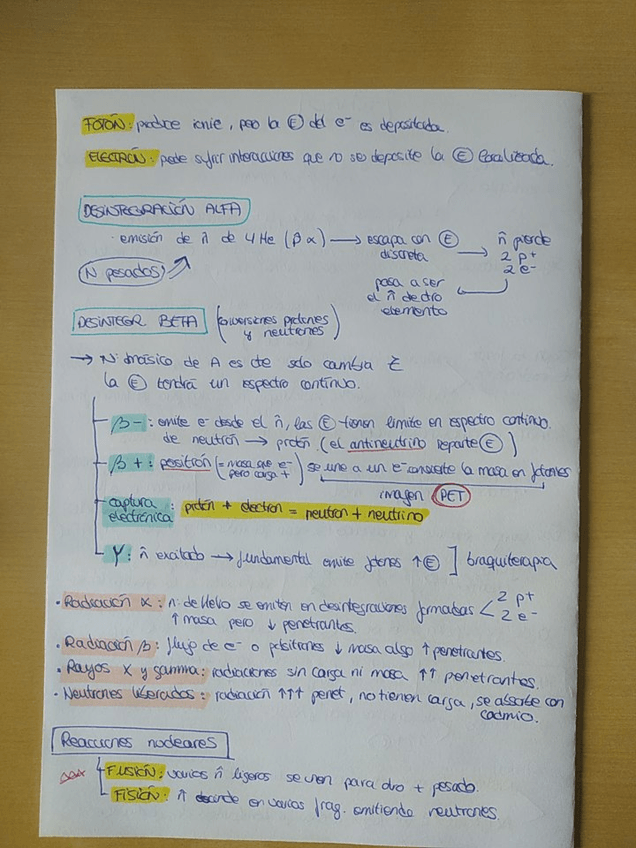 FOTÓN: produce ionic, pero la Ⓔ del e⁻ es depositada.
ELECTRÓN: pede sufrir interacciones que no se deposite la Ⓔ localizada.
DESINTEGRACIÓN ALFA
emisión de ñ de 4 He (β α) → escapa con Ⓔ discreta → ñ pierde 2 p⁺ 2 e⁻
N pesados
pasa a ser el ñ de otro elemento
DESINTEGR BETA (conversiones protones y neutrones)
→ Nº másico de A es cte solo cambia Z
la Ⓔ tendrá un espectro contínuo.
β-: emite e⁻ desde el ñ, las Ⓔ tienen limite en espectro continuo.
de neutrón → protón (el antineutrino reparte Ⓔ)
β+: positrón (= masa que e⁻ pero carga +) se une a un e⁻ convierte la masa en fotones
imagen PET
captura electrónica: protón + electron = neutron + neutrino
γ: ñ excitado → fundamental emite fotones ↑Ⓔ ] braquiterapia
· Radiación α: n. de Helio se emiten en desintegraciones formadas < 2 p⁺ 2 e⁻
↑ masa pero ↓ penetrantes.
· Radiación β: flujo de e⁻ o positrones ↓ masa algo ↑ penetrantes.
· Rayos X y gamma: radiaciones sin carga ni masa ↑↑ penetrantes.
· Neutrones liberados: radiación ↑↑↑ penet, no tienen carga, se absorbe con
cadmio.
Reacciones nucleares
FUSIÓN: varios ñ ligeros se unen para otro + pesado.
FISIÓN: ñ escinde en varios frag. emitiendo neutrones.